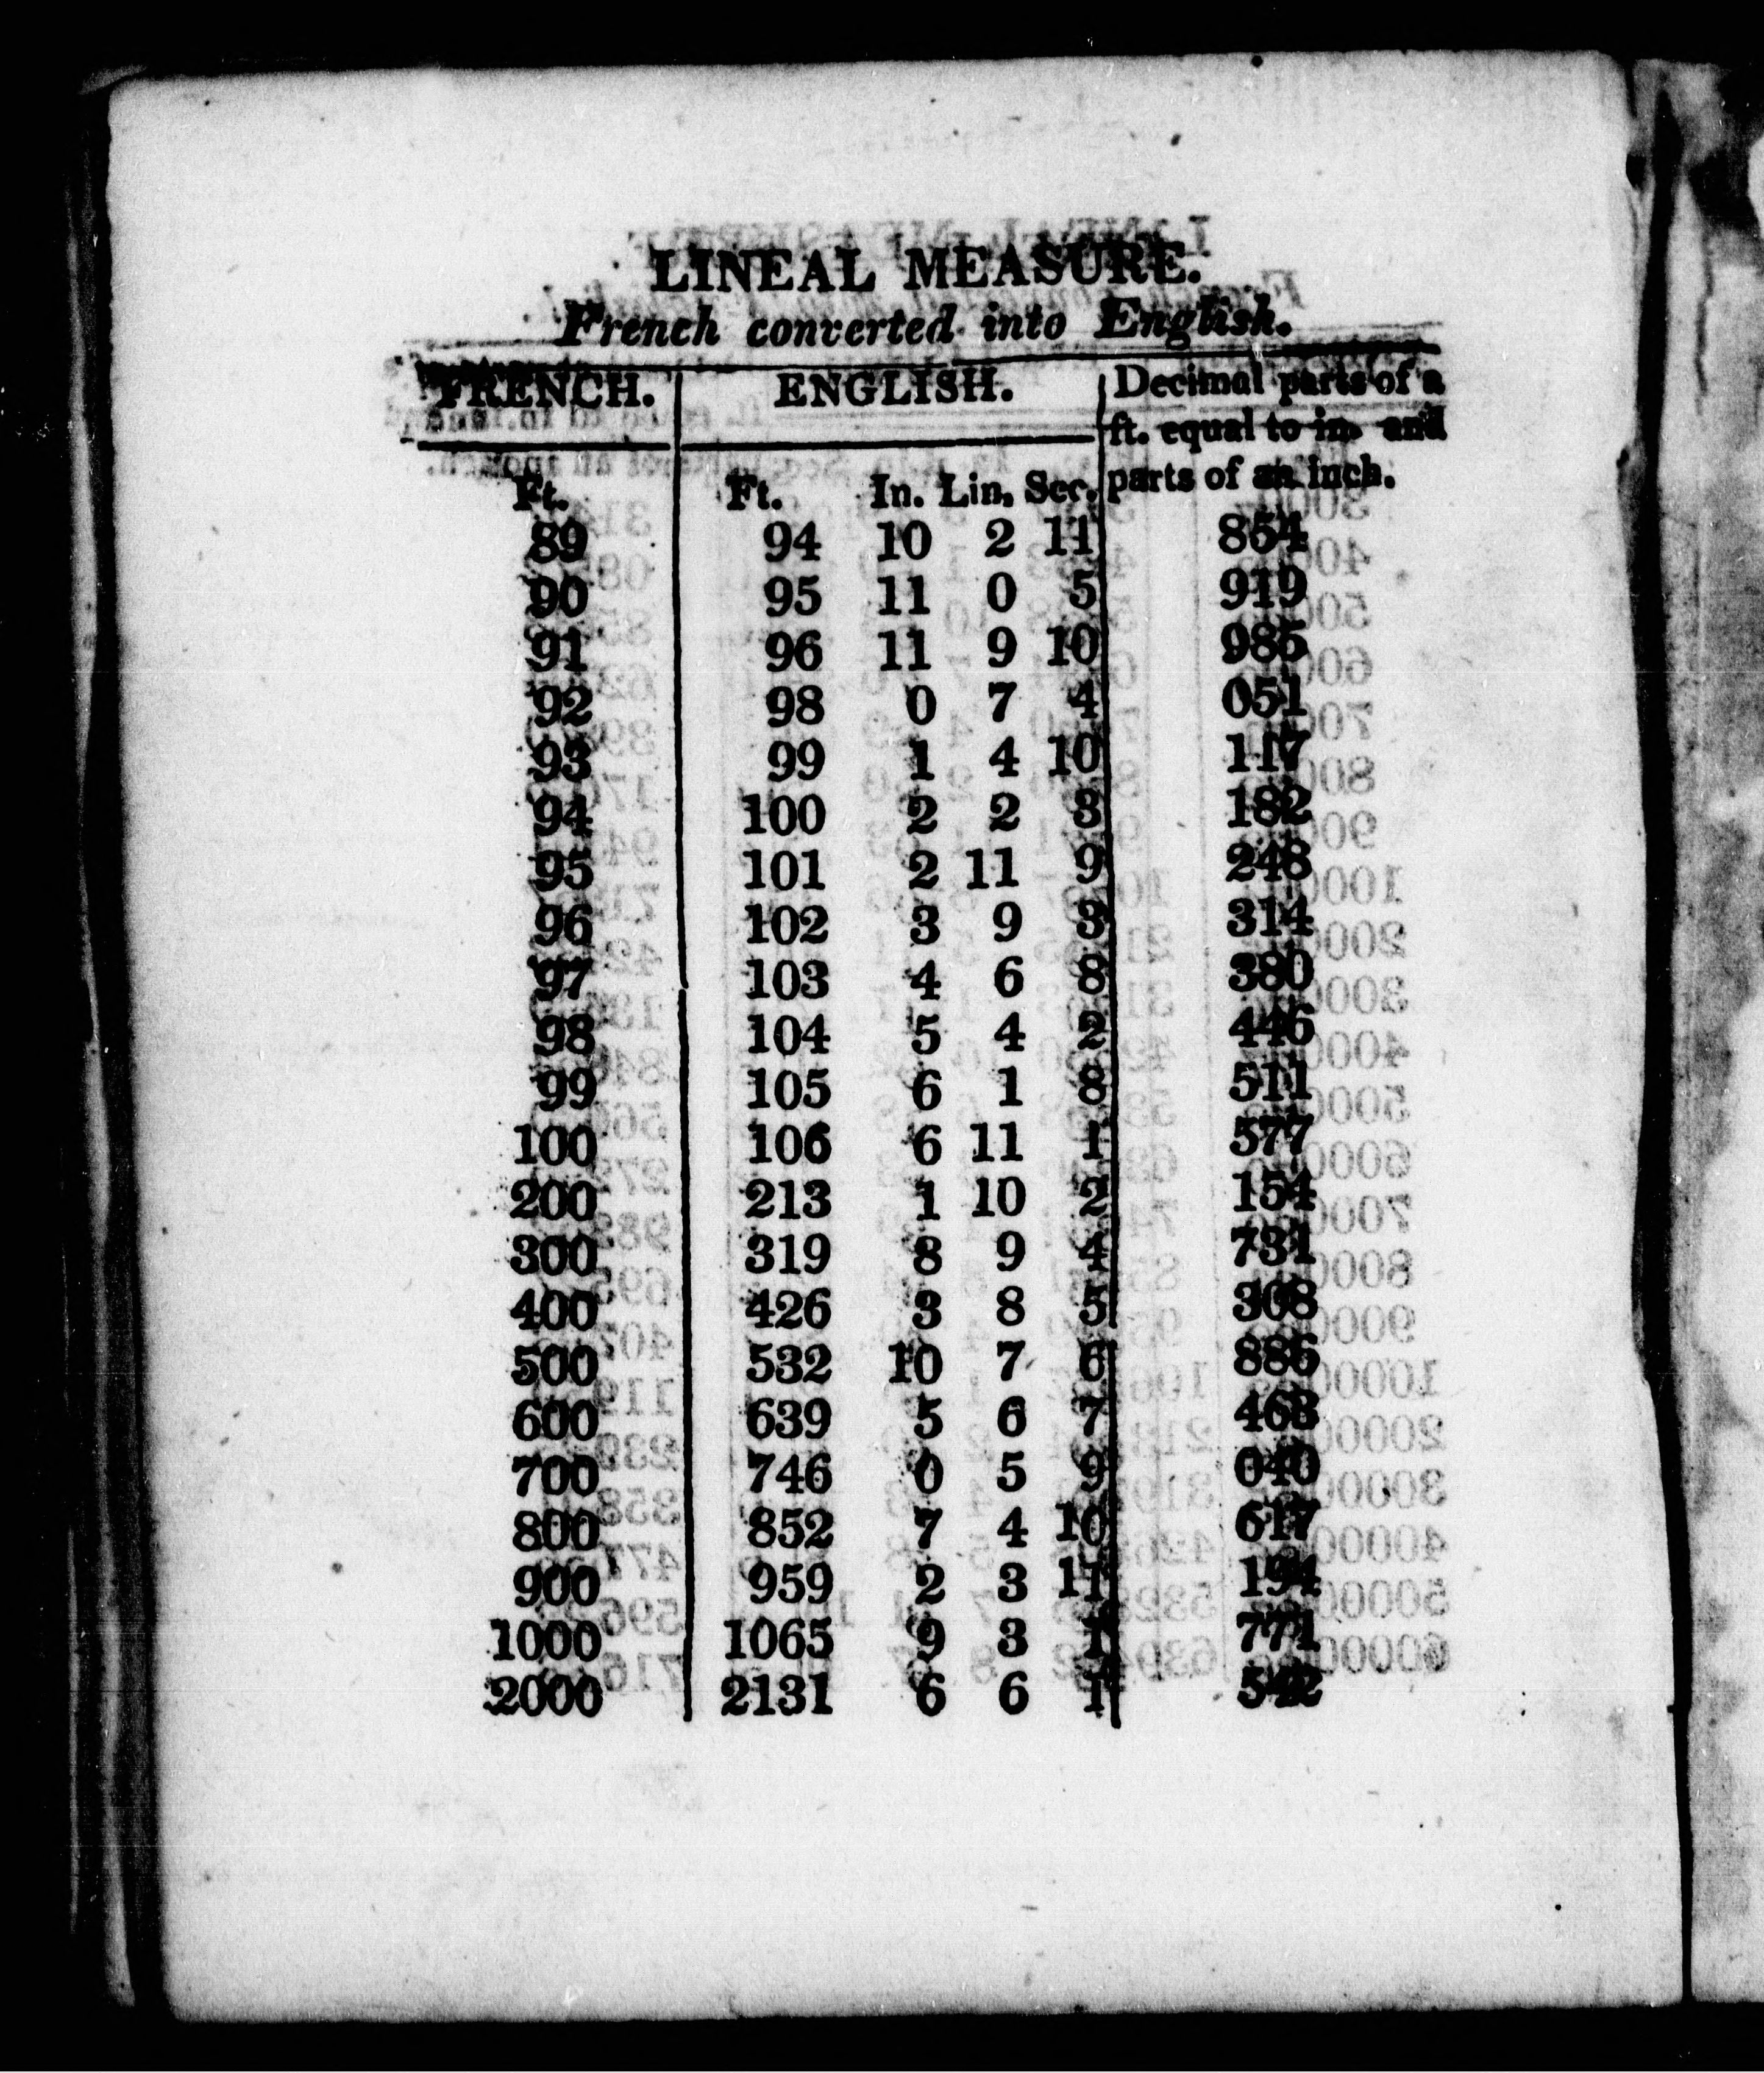 LINEAL MEASURE.
French converted into English.
FRENCH. ENGLISH. Decimal parts of a
ft. equal to in. and
parts of an inch.
Ft. Ft. In. Lin. Sec.
89 94 10 2 11 854
90 95 11 0 5 919
91 96 11 9 10 985
92 98 0 7 4 051
93 99 1 4 10 117
94 100 2 2 3 182
95 101 2 11 9 248
96 102 3 9 3 314
97 103 4 6 8 380
98 104 5 4 2 446
99 105 6 1 8 511
100 106 6 11 1 577
200 213 1 10 2 154
300 319 8 9 4 731
400 426 3 8 5 308
500 532 10 7 6 886
600 639 5 6 7 463
700 746 0 5 9 040
800 852 7 4 10 617
900 959 2 3 11 194
1000 1065 9 3 1 771
2000 2131 6 6 1 542